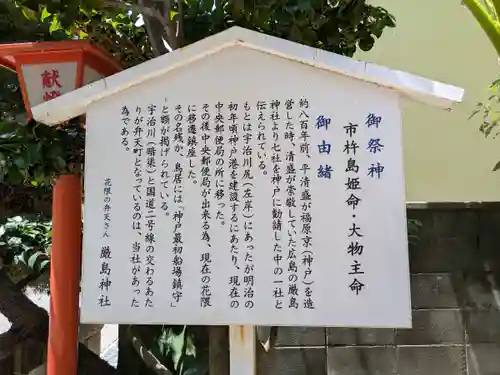 御祭神
市杵島姫命・大物主命
御由緒
約八百年前、平清盛が福原京(神戸)を造
営した時、清盛が崇敬していた広島の厳島
神社より七社を神戸に勧請した中の一社と
伝えられている。
もとは宇治川尻(左岸)にあったが明治の
初年頃神戸港を建設するにあたり、現在の
中央郵便局の所に移った。
その後中央郵便局が出来る為、現在の花隈
に移遷鎮座した。
その名残か、鳥居には『神戸最初船場鎮守』
と額が掲げられている。
宇治川(暗渠)と国道二号線の交わるあた
りが弁天町となっているのは、当社があった
為である。
花隈の弁天さん
厳島神社
献